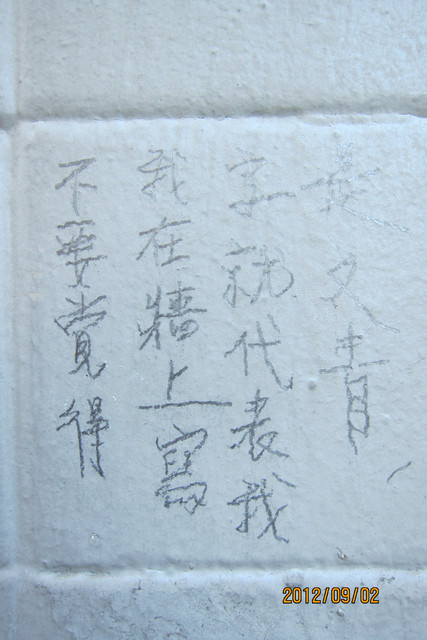 不要覺得
我在牆上寫
字就代表我
是文青
2012/09/02